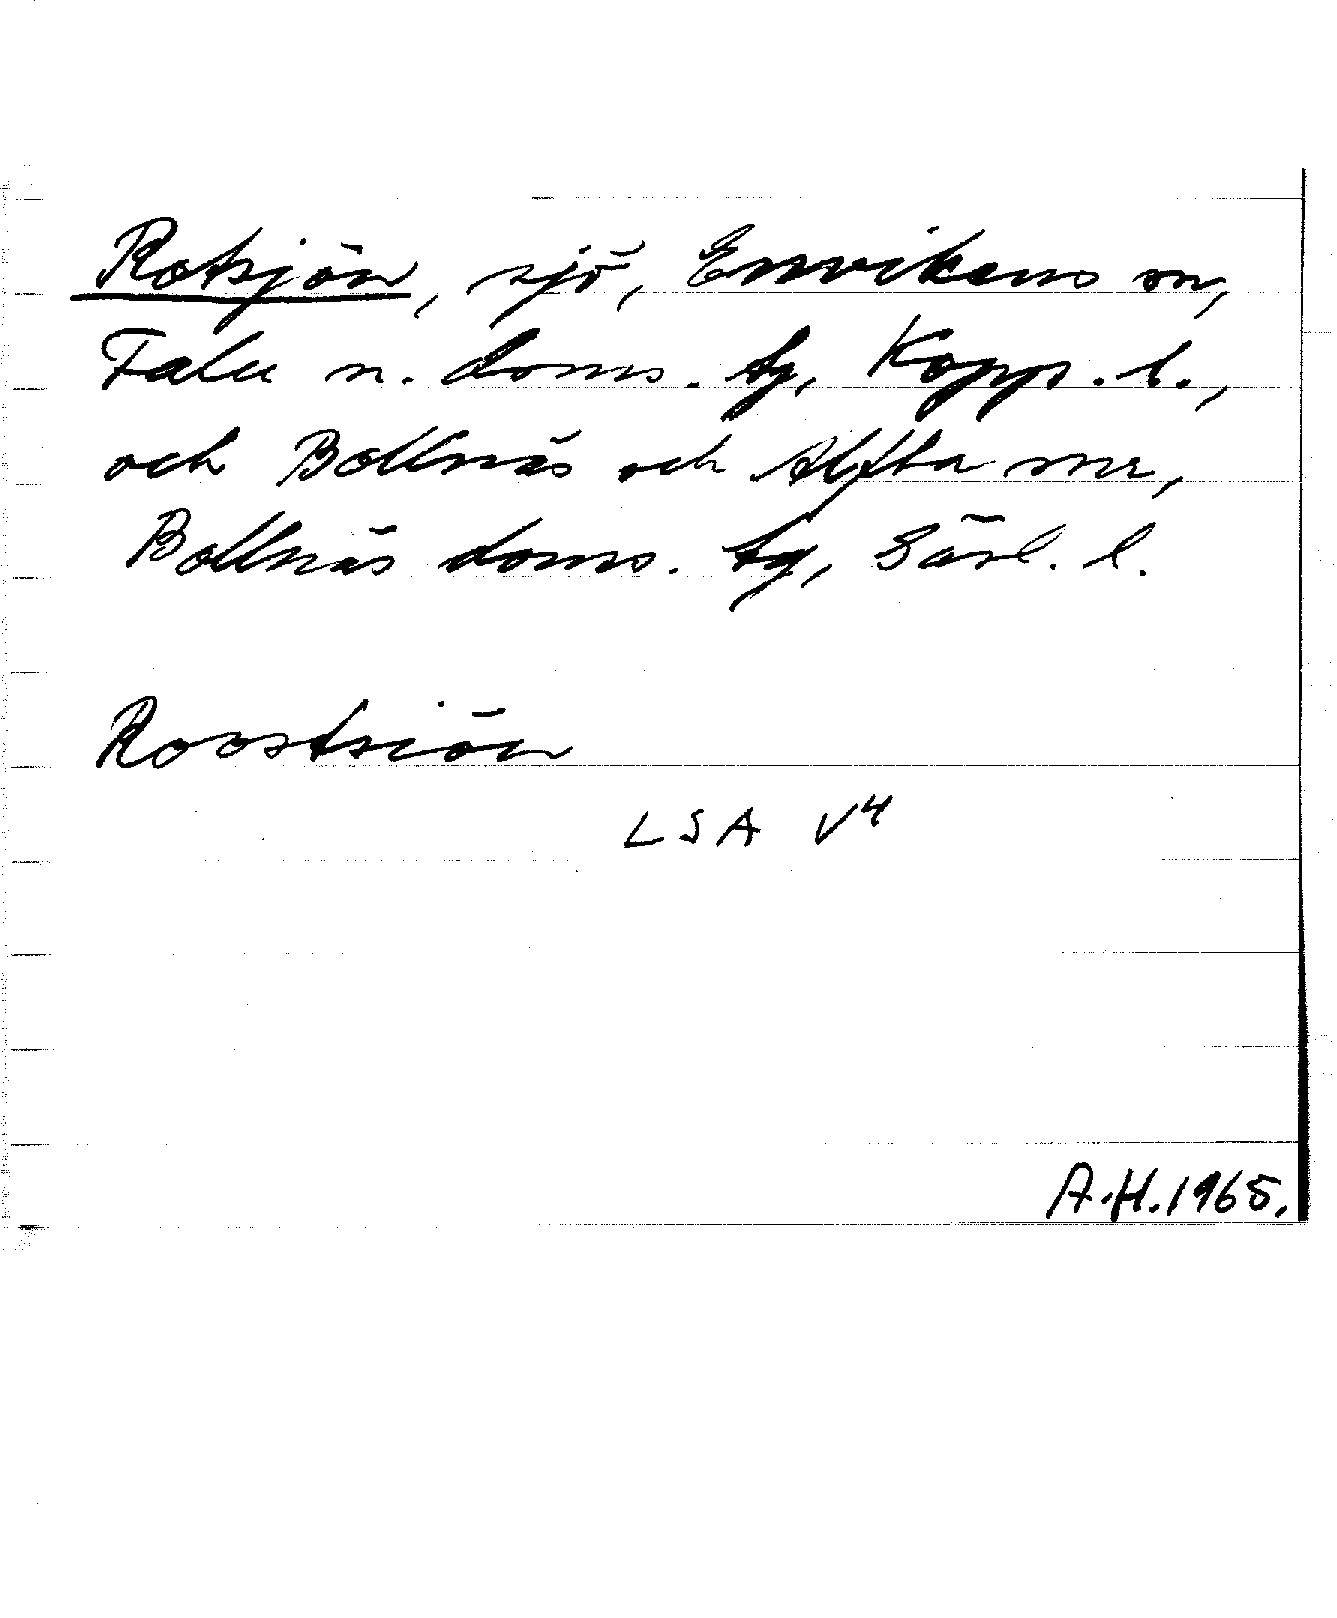 Rotsjön, sjö, Envikens sn,
Falu n. doms. tg, Kopps. l.,
och Bollnäs och Alfta snr,
Bollnäs doms. tg, Gävl. l.
Roostsiön
LSA V4
A.H. 1965.